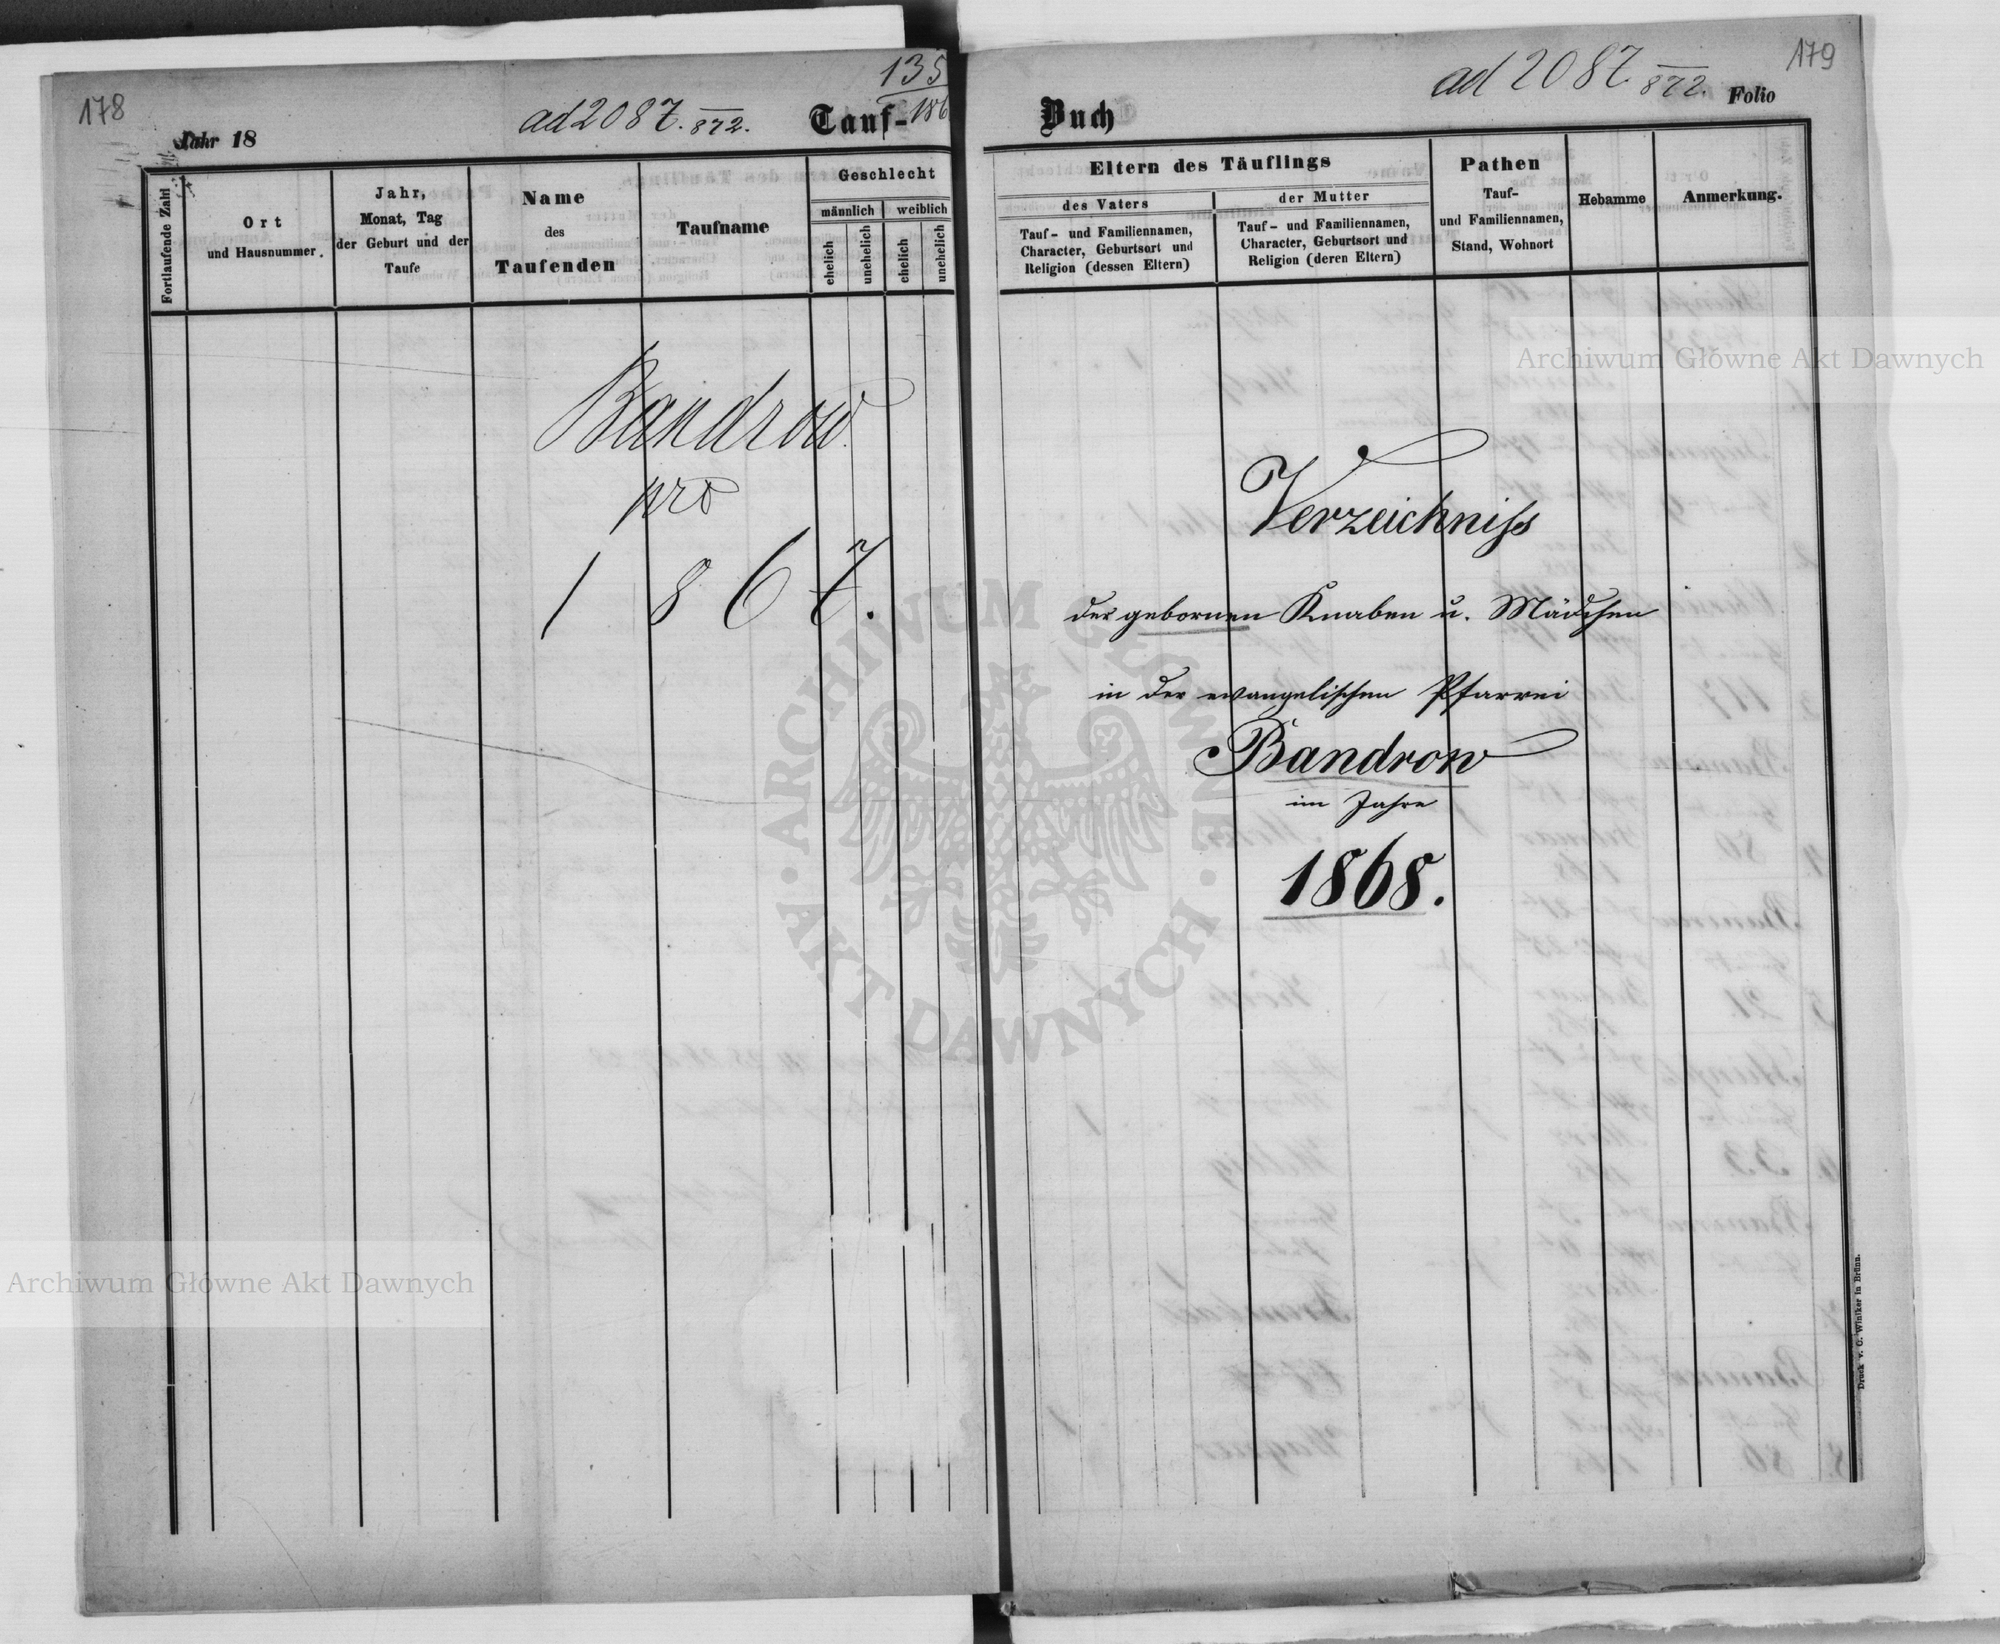 178
135
186
Jahr 18
ad 2087. 872.
Tauf-
Fortlaufende Zahl
Ort
und Hausnummer.
Jahr,
Monat, Tag
der Geburt und der
Taufe
Name
des
Taufenden
Taufname
Geschlecht
männlich
weiblich
ehelich
unehelich
ehelich
unehelich
Bandrow
pro
1867.
179
ad 2087 872.
Buch
Folio
Eltern des Täuflings
des Vaters
der Mutter
Tauf- und Familiennamen,
Character, Geburtsort und
Religion (dessen Eltern)
Tauf- und Familiennamen,
Character, Geburtsort und
Religion (deren Eltern)
Pathen
Tauf-
und Familiennamen,
Stand, Wohnort
Hebamme
Anmerkung.
Verzeichniss
der gebornen Knaben u. Mädchen
in der evangelischen Pfarrei
Bandrow
im Jahre
1868.
Druck v. C. Winiker in Brünn.
Archiwum Główne Akt Dawnych
Archiwum Główne Akt Dawnych
ARCHIWUM GŁÓWNE AKT DAWNYCH